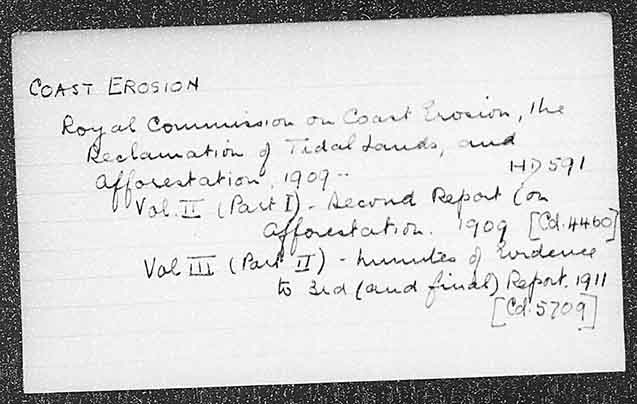 COAST EROSION
Royal Commission on Coast Erosion, the
Reclamation of Tidal Lands, and
Afforestation, 1909--
HD 591
Vol. II (Part I) - Second Report (on
Afforestation. 1909 [Cd. 4460]
Vol III (Part II) - Minutes of Evidence
to 3rd (and final) Report. 1911
[Cd. 5709]